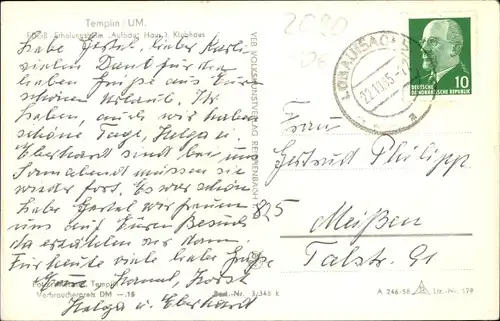 Templin / UM.
FDGB-Erholungsheim "Aufbau" Haus 3, Klubhaus
Liebe Gertel, lieber Karli
vielen Dank für die
lieben Grüße aus Eurem
schönen Urlaub. Ihr
haben, auch wir haben
schöne Tage, Helga u.
Eberhard sind bei uns
Sonnabend müssen sie
wieder fort. Es war schön
Liebe Gertel wir freuen
uns auf Euren Besuch
da erzählen wir dann
Für heute viele liebe Grüße
Horst
Helga u. Eberhard
Templin
Verbraucherpreis DM —.15
Best.-Nr. 3/348 k
VEB VOLKSKUNSTVERLAG REICHENBACH
2080
LÖBAU (SACHS)
22.10.65
10
DEUTSCHE
DEMOKRATISCHE REPUBLIK
Frau
Gertrud Philipp
825
Meißen
Talstr. 91
A 246-58
Liz.-Nr. 179